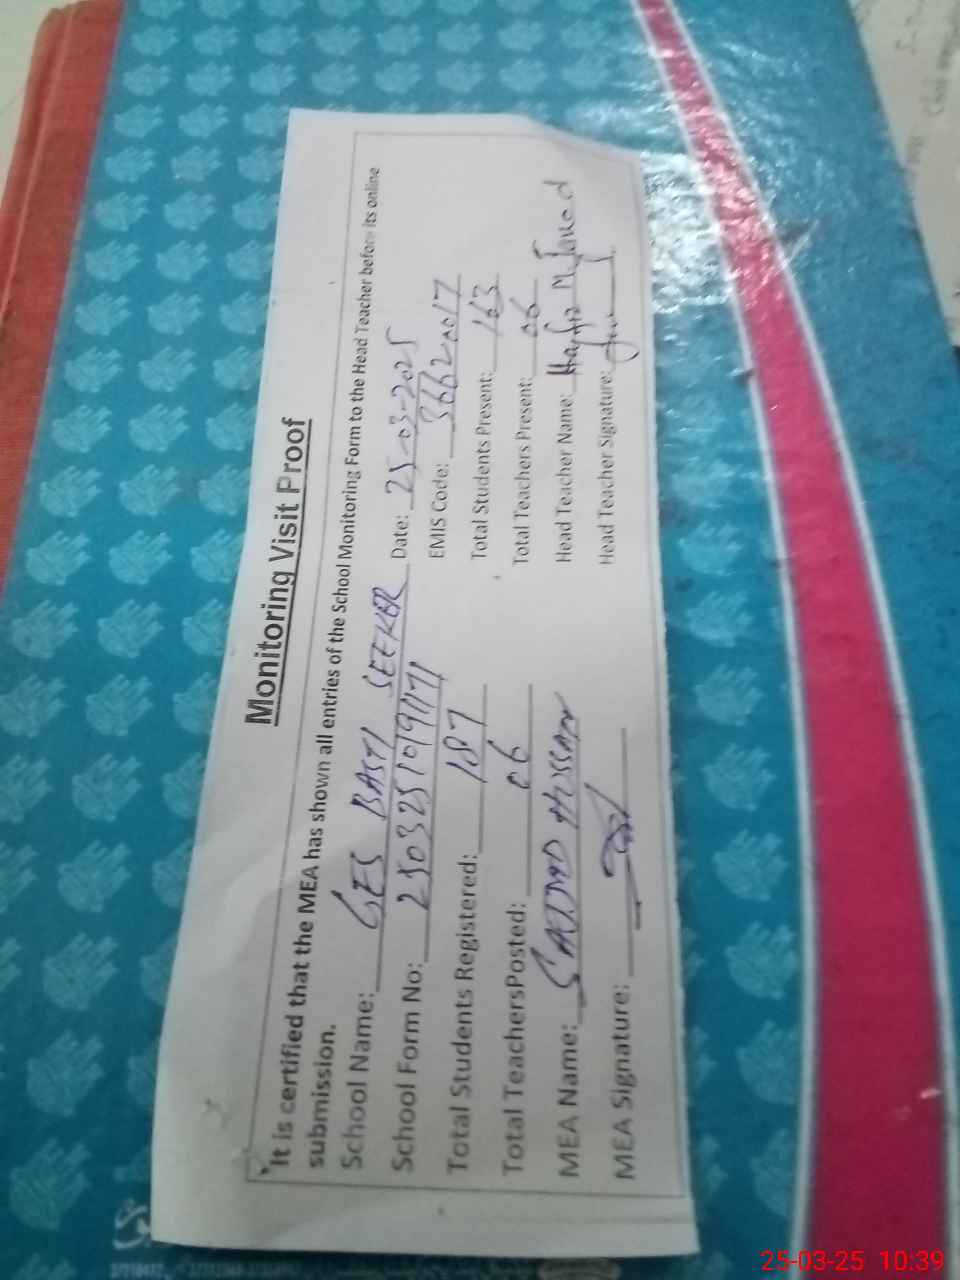 Monitoring Visit Proof
It is certified that the MEA has shown all entries of the School Monitoring Form to the Head Teacher before its online
submission.
School Name: GES BASTI SEEKER Date: 25-03-2025
School Form No: 25032510191171 EMIS Code: 36620017
Total Students Registered: 187 Total Students Present: 163
Total TeachersPosted: 06 Total Teachers Present: 06
MEA Name: SAJJAD HUSSAIN Head Teacher Name: Hafiz M Javed
MEA Signature: Head Teacher Signature:
25-03-25 10:39